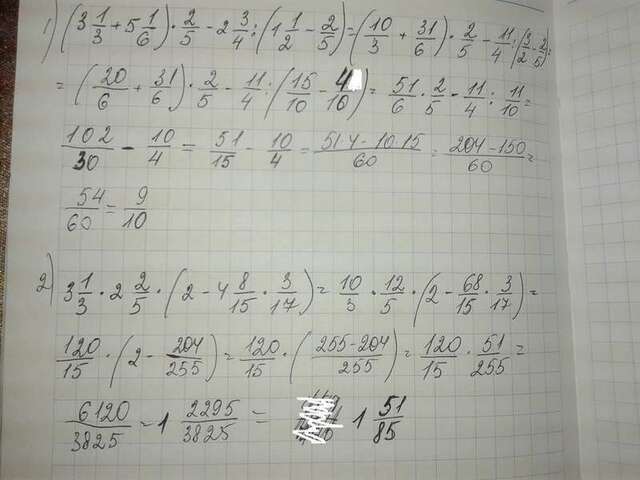 1) (3 1/3 + 5 1/6) · 2/5 - 2 3/4 : (1 1/2 - 2/5) = (10/3 + 31/6) · 2/5 - 11/4 : (3/2 - 2/5) =
= (20/6 + 31/6) · 2/5 - 11/4 : (15/10 - 4/10) = 51/6 · 2/5 - 11/4 : 11/10 =
102/30 - 10/4 = 51/15 - 10/4 = (51·4 - 10·15)/60 = (204 - 150)/60 =
54/60 = 9/10
2) 3 1/3 · 2 2/5 · (2 - 4 8/15 · 3/17) = 10/3 · 12/5 · (2 - 68/15 · 3/17) =
120/15 · (2 - 204/255) = 120/15 · (255-204/255) = 120/15 · 51/255 =
6120/3825 = 1 2295/3825 = 1 51/85